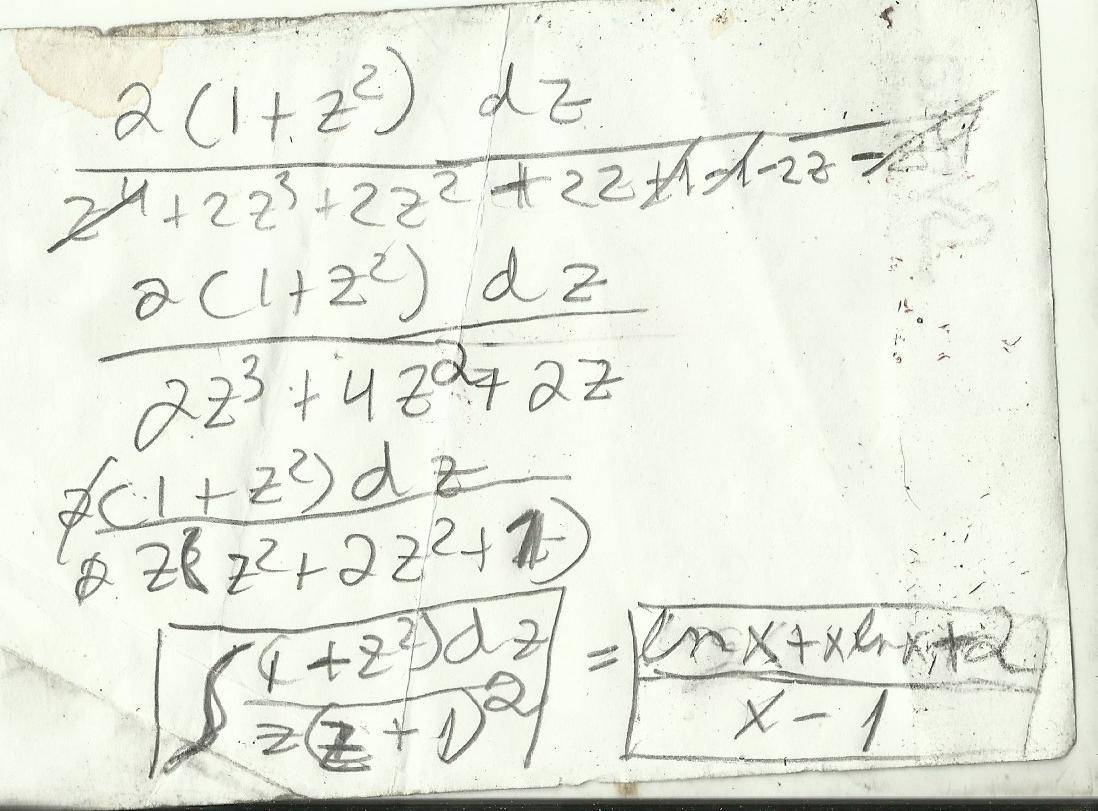 2(1+z²) dz
z⁴+2z³+2z²+2z+1-1-2z-
2(1+z²) dz
2z³+4z²+2z
2(1+z²)dz
2z(z²+2z²+1)
∫ (1+z²)dz / z(z+1)² = lnx+xlnx+2 / x-1